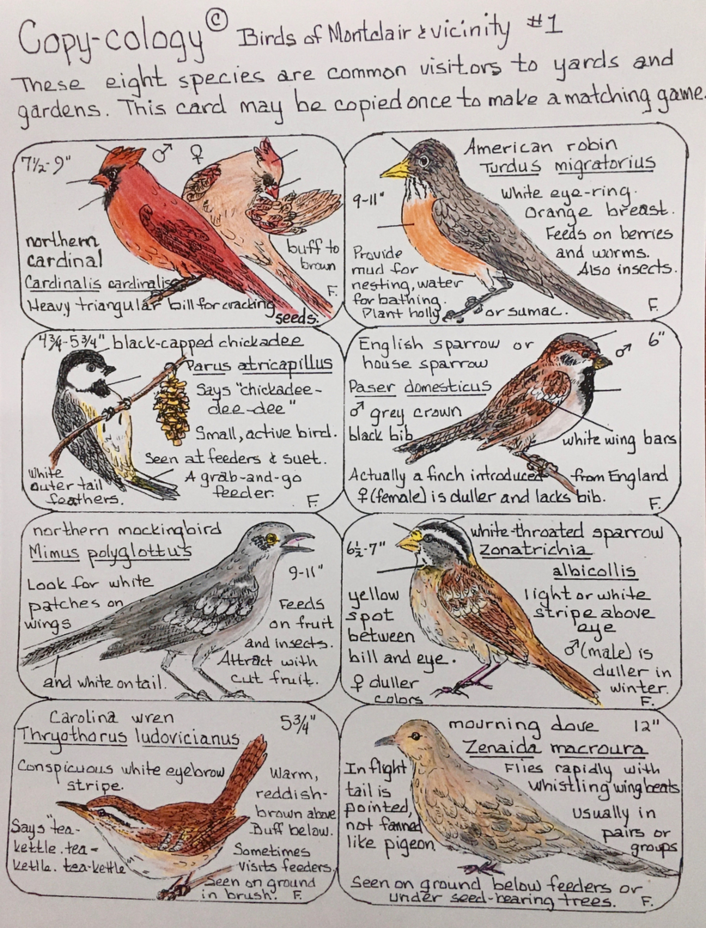 Copy-cology © Birds of Montclair & vicinity #1
These eight species are common visitors to yards and
gardens. This card may be copied once to make a matching game.
7½-9" ♂ ♀
northern
cardinal
Cardinalis cardinalis
buff to
brown
Heavy triangular bill for cracking
seeds. F.
American robin
Turdus migratorius
9-11"
White eye-ring.
Orange breast.
Feeds on berries
and worms.
Also insects.
Provide
mud for
nesting, water
for bathing.
Plant holly or sumac. F.
4¾-5¾" black-capped chickadee
Parus atricapillus
Says "chickadee-
dee-dee"
Small, active bird.
Seen at feeders & suet.
A grab-and-go
feeder.
White
outer tail
feathers. F.
English sparrow or
house sparrow
♂ 6"
Paser domesticus
♂ grey crown
black bib
white wing bars
Actually a finch introduced from England
♀(female) is duller and lacks bib. F.
northern mockingbird
Mimus polyglottus
9-11"
Look for white
patches on
wings
and white on tail.
Feeds
on fruit
and insects.
Attract with
cut fruit. F.
6½-7" white-throated sparrow
Zonatrichia
albicollis
yellow
spot
between
bill and eye.
♀ duller
colors
light or white
stripe above
eye
♂(male) is
duller in
winter.
F.
Carolina wren 5¾"
Thryothorus ludovicianus
Conspicuous white eyebrow
stripe.
Says "tea-
kettle. tea-
kettle. tea-kettle"
Warm,
reddish-
brown above
Buff below.
Sometimes
visits feeders.
Seen on ground
in brush. F.
mourning dove 12"
Zenaida macroura
In flight
tail is
pointed,
not fanned
like pigeon
Flies rapidly with
whistling wingbeats
Usually in
pairs or
groups
Seen on ground below feeders or
under seed-bearing trees. F.